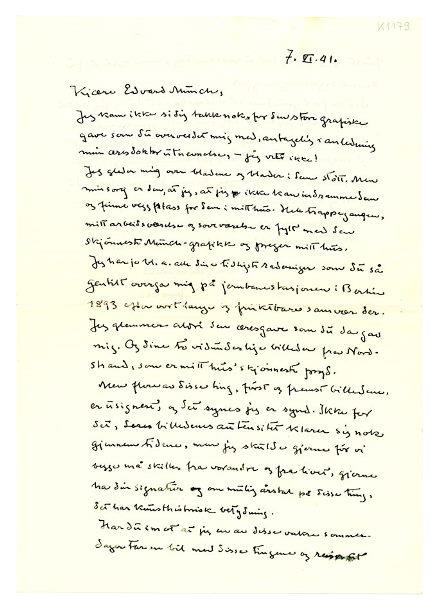 K1179
7. VI. 41.
Kjære Edvard Munch,
Jeg kan ikke si dig takk nok, for den store grafiske
gave som du overveldet mig med, antagelig i anledning
min æresdoktorutnevnelse, – jeg vet ikke!
Jeg gleder mig over bladene og blader i dem støtt. Men
min sorg er den, at jeg, at jeg ikke kan indramme dem
og finne veggplass for dem i mitt hus. Hele trappegangen,
mitt arbeidsværelse og soveværelse er fylt med den
skjønneste Munch-grafikk og preger mitt hus.
Jeg har jo bl. a. alle dine tidligste raderinger som du så
gentilt overga mig på jernbanestasjonen i Berlin
1893 efter vort lange og fruktbare samvær der.
Jeg glemmer aldri den æresgave som du da gav
mig. Og dine to vidunderlige billeder fra Nord-
strand, som er mitt hus' skjønneste pryd.
Men flere av disse ting, først og fremst billedene,
er usignert, og det synes jeg er synd. Ikke for
det, deres billedenes autensitet klarer sig nok
gjennem tidene, men jeg skulde gjerne før vi
begge må skilles fra vorandre og fra livet, gjerne
ha din signatur og om mulig årstal på disse ting,
det har kunsthistorisk betydning.
Har du imot at jeg en av disse vakre sommer-
dager tar en bil med disse tingene og